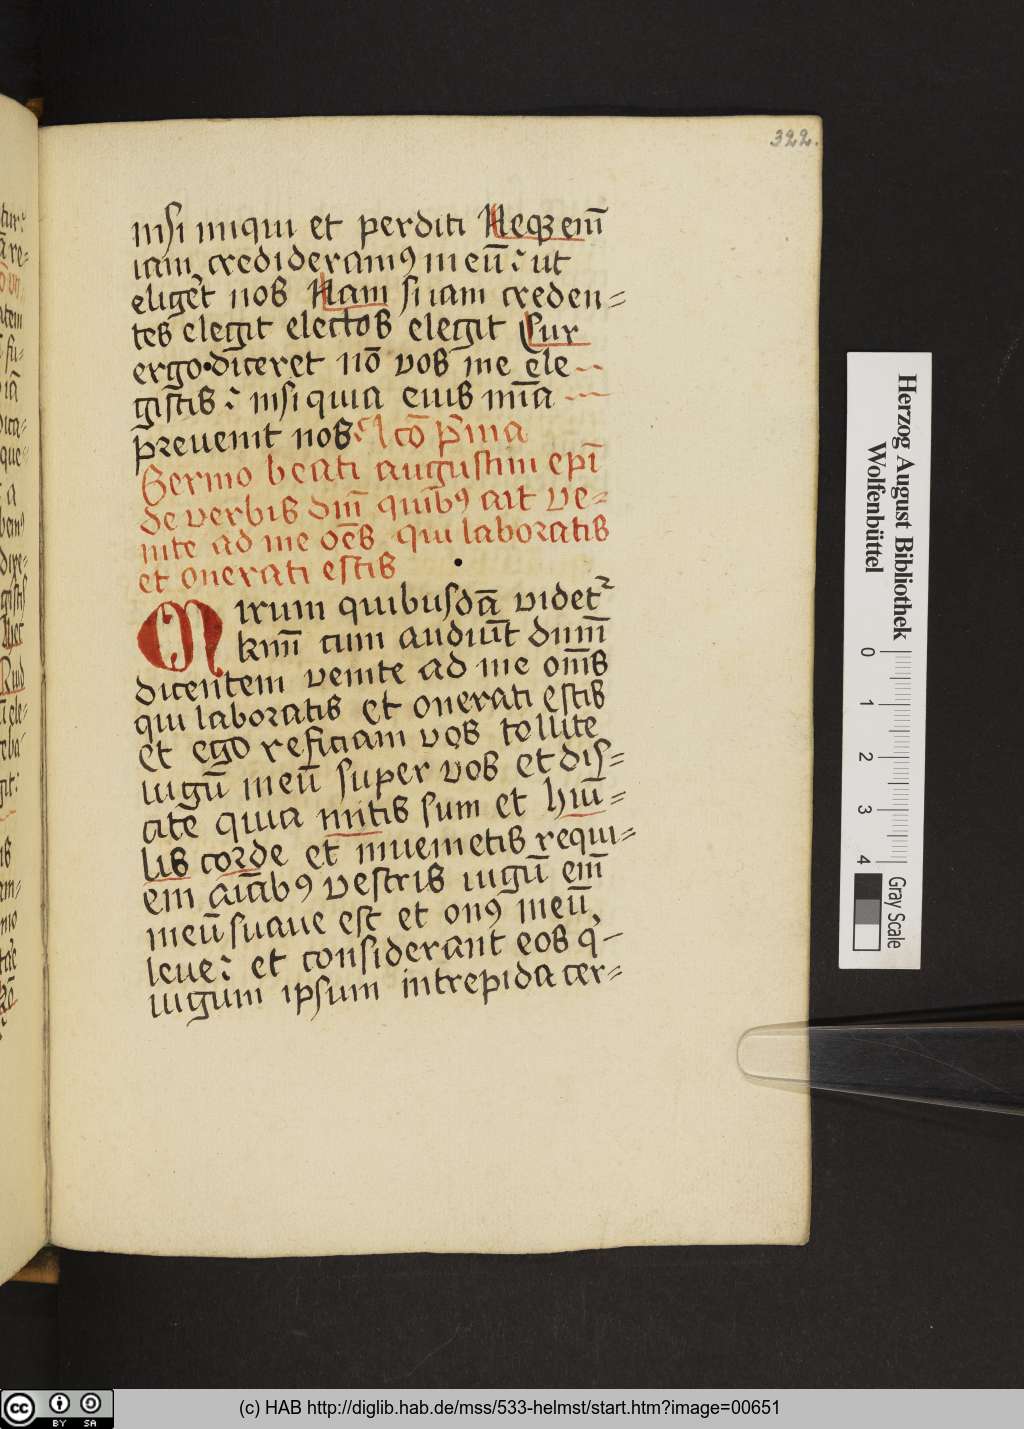 322.
nisi iniqui et perditi Neqꝫ enī
iam credideramꝰ in eū ⁊ ut
eligēt nos Nam si iam creden=
tes elegit electos elegit Cur
ergo · dīceret nō vos me ele
gīstis ⁊ nisi quia eius mīa
preuenit nos lcō p̄ma
Sermo beati augustini ep̄i
de verbis dn̄i quibꝰ ait ve=
nite ad me oēs qui laboratis
et onerati estis
Mirum quibusdā videt᷑
km̄ī cum audiūt dn̄m
dicentem venite ad me om̄s
qui laboratis et onerati estis
et ego reficiam vos tollite
iugū meū super vos et dis=
cite quia mitis sum et hūi=
lis corde et inuenietis requi=
em aīabꝰ vestris iugū em̄
meū suaue est et onꝰ meū
leue ⁊ et considerant eos q̄
iugum ipsum intrepida cer=
Herzog August Bibliothek
Wolfenbüttel
0 1 2 3 4
Gray Scale
cc BY SA
(c) HAB http://diglib.hab.de/mss/533-helmst/start.htm?image=00651